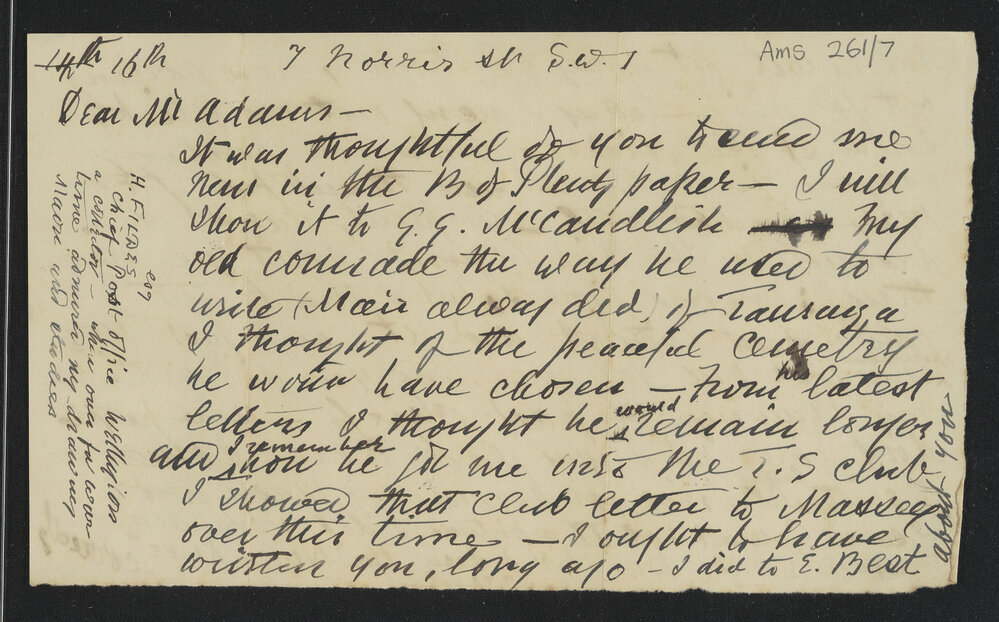 14th 16th 7 Norris St S.W. 1
Ams 261/7
Dear Mr Adams —
It was thoughtful of you to send me
news in the B of Plenty paper — I will
show it to G. G. McCandlish my
old comrade the way he used to
write (Mair always did) of Tauranga
I thought of the peaceful Cemetry
he would have chosen — From his latest
letters I thought he would remain longer
and I remember how he got me into the T. S club
I showed that Club letter to Massey
over this time — I ought to have
written you, long ago — I did to E. Best
about you
H FILDES 207
Chief post office Wellington
a — was over for
time admired my drawings
Maori and studies